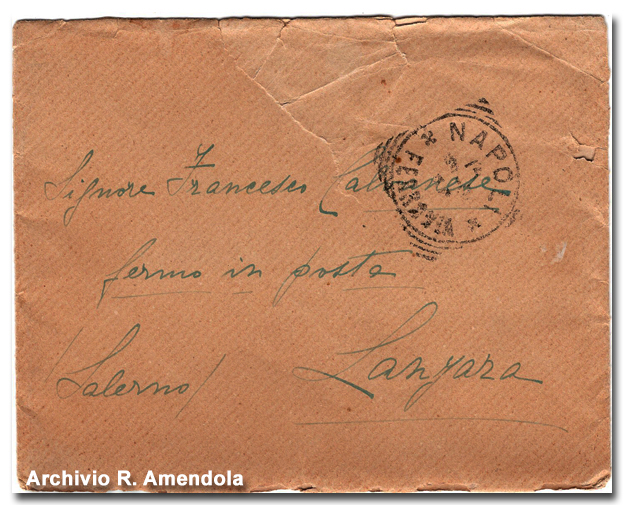 NAPOLI
FERROVIA
Signore Francesco Calvanese
fermo in posta
(Salerno) Lanzara
Archivio R. Amendola